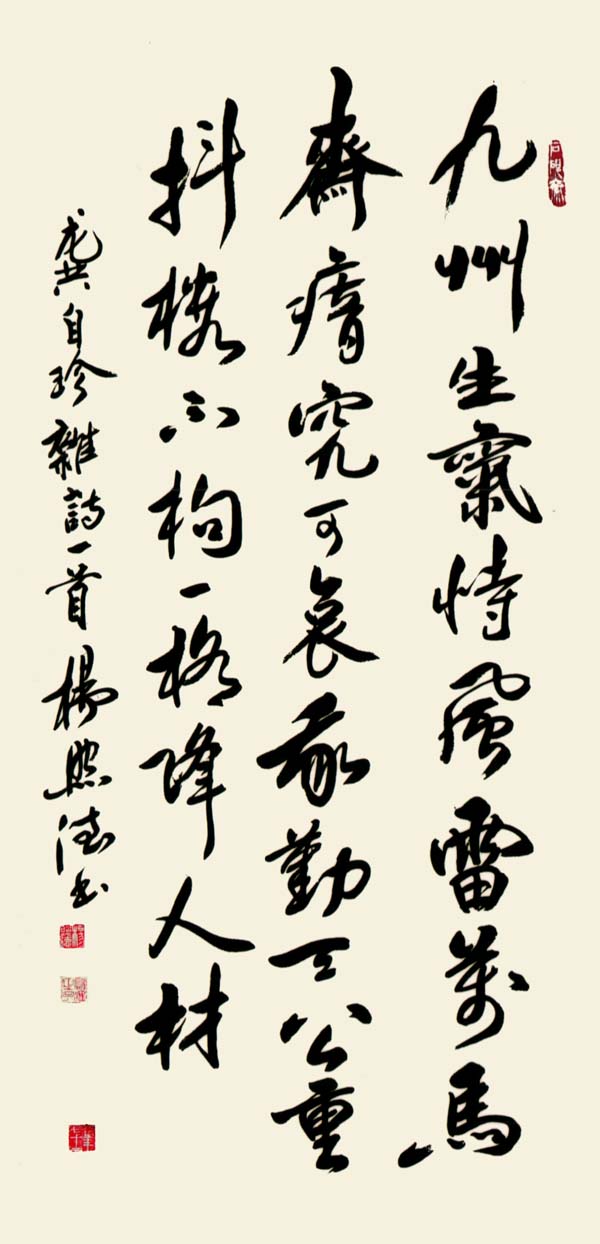 九州生氣恃風雷萬馬
齊瘖究可哀我勤天公重
抖擻不拘一格降人材
龔自珍雜詩一首 楊照德書